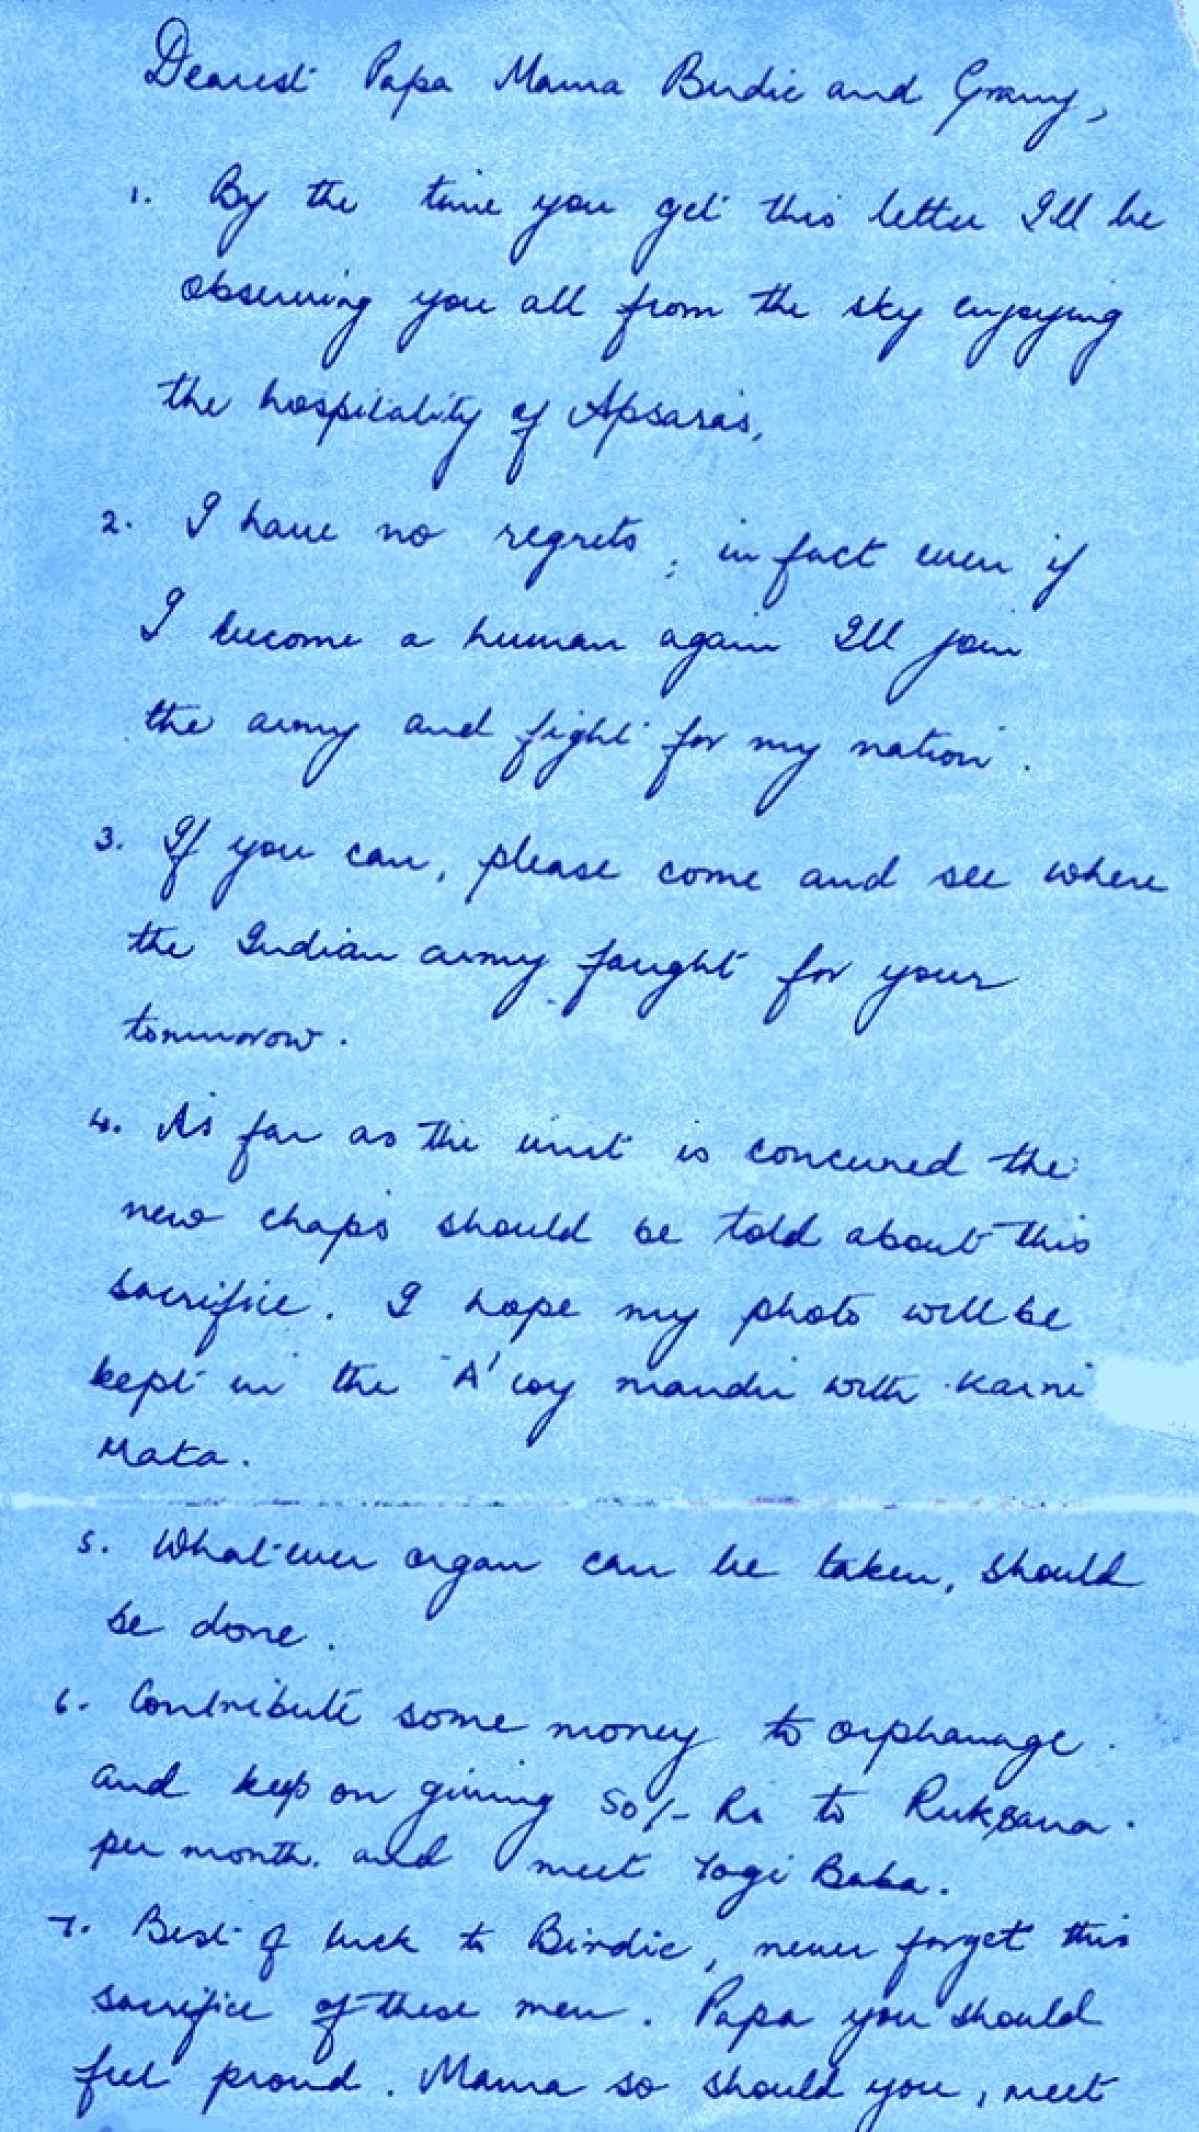 Dearest Papa Mama Birdie and Granny,
1. By the time you get this letter I'll be
observing you all from the sky enjoying
the hospitality of Apsaras.
2. I have no regrets, in fact even if
I become a human again I'll join
the army and fight for my nation.
3. If you can, please come and see where
the Indian army fought for your
tomorrow.
4. As far as the unit is concerned the
new chaps should be told about this
sacrifice. I hope my photo will be
kept in the 'A' coy mandir with Karni
Mata.
5. Whatever organ can be taken, should
be done.
6. Contribute some money to orphanage.
and keep on giving 50/- Rs to Ruksana.
per month. and meet Yogi Baba.
7. Best of luck to Birdie, never forget this
sacrifice of these men. Papa you should
feel proud. Mama so should you, meet